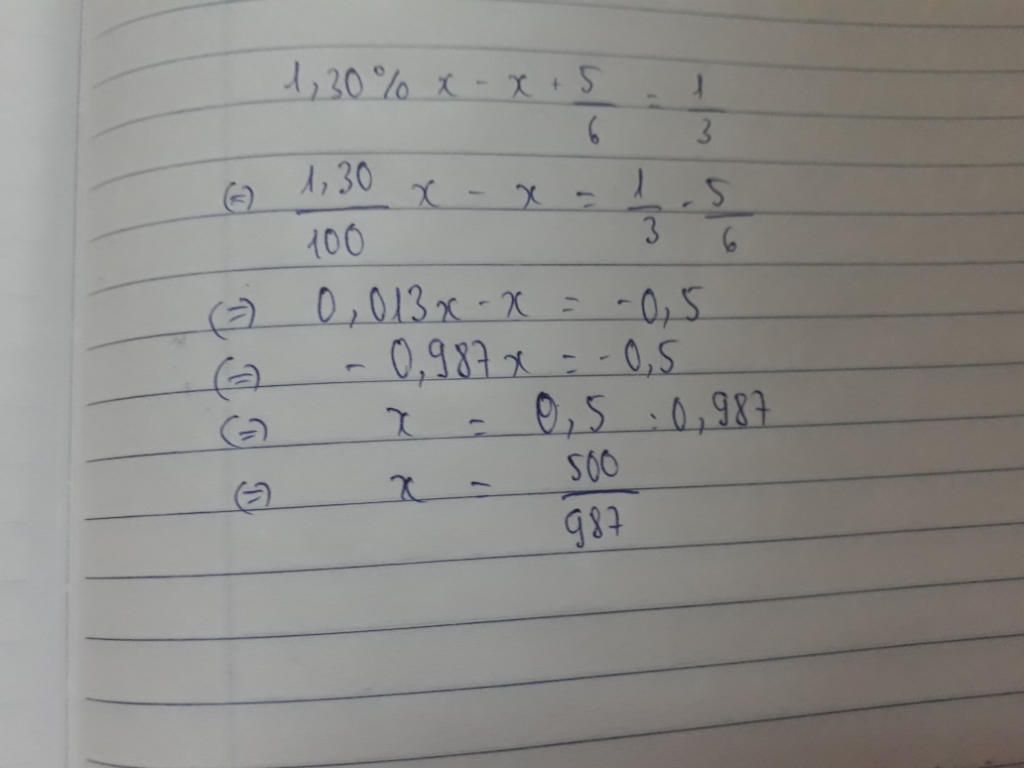 1,30% x - x + 5/6 = 1/3
(=) 1,30/100 x - x = 1/3 - 5/6
(=) 0,013x - x = -0,5
(=) - 0,987x = -0,5
(=) x = 0,5 : 0,987
(=) x = 500/987